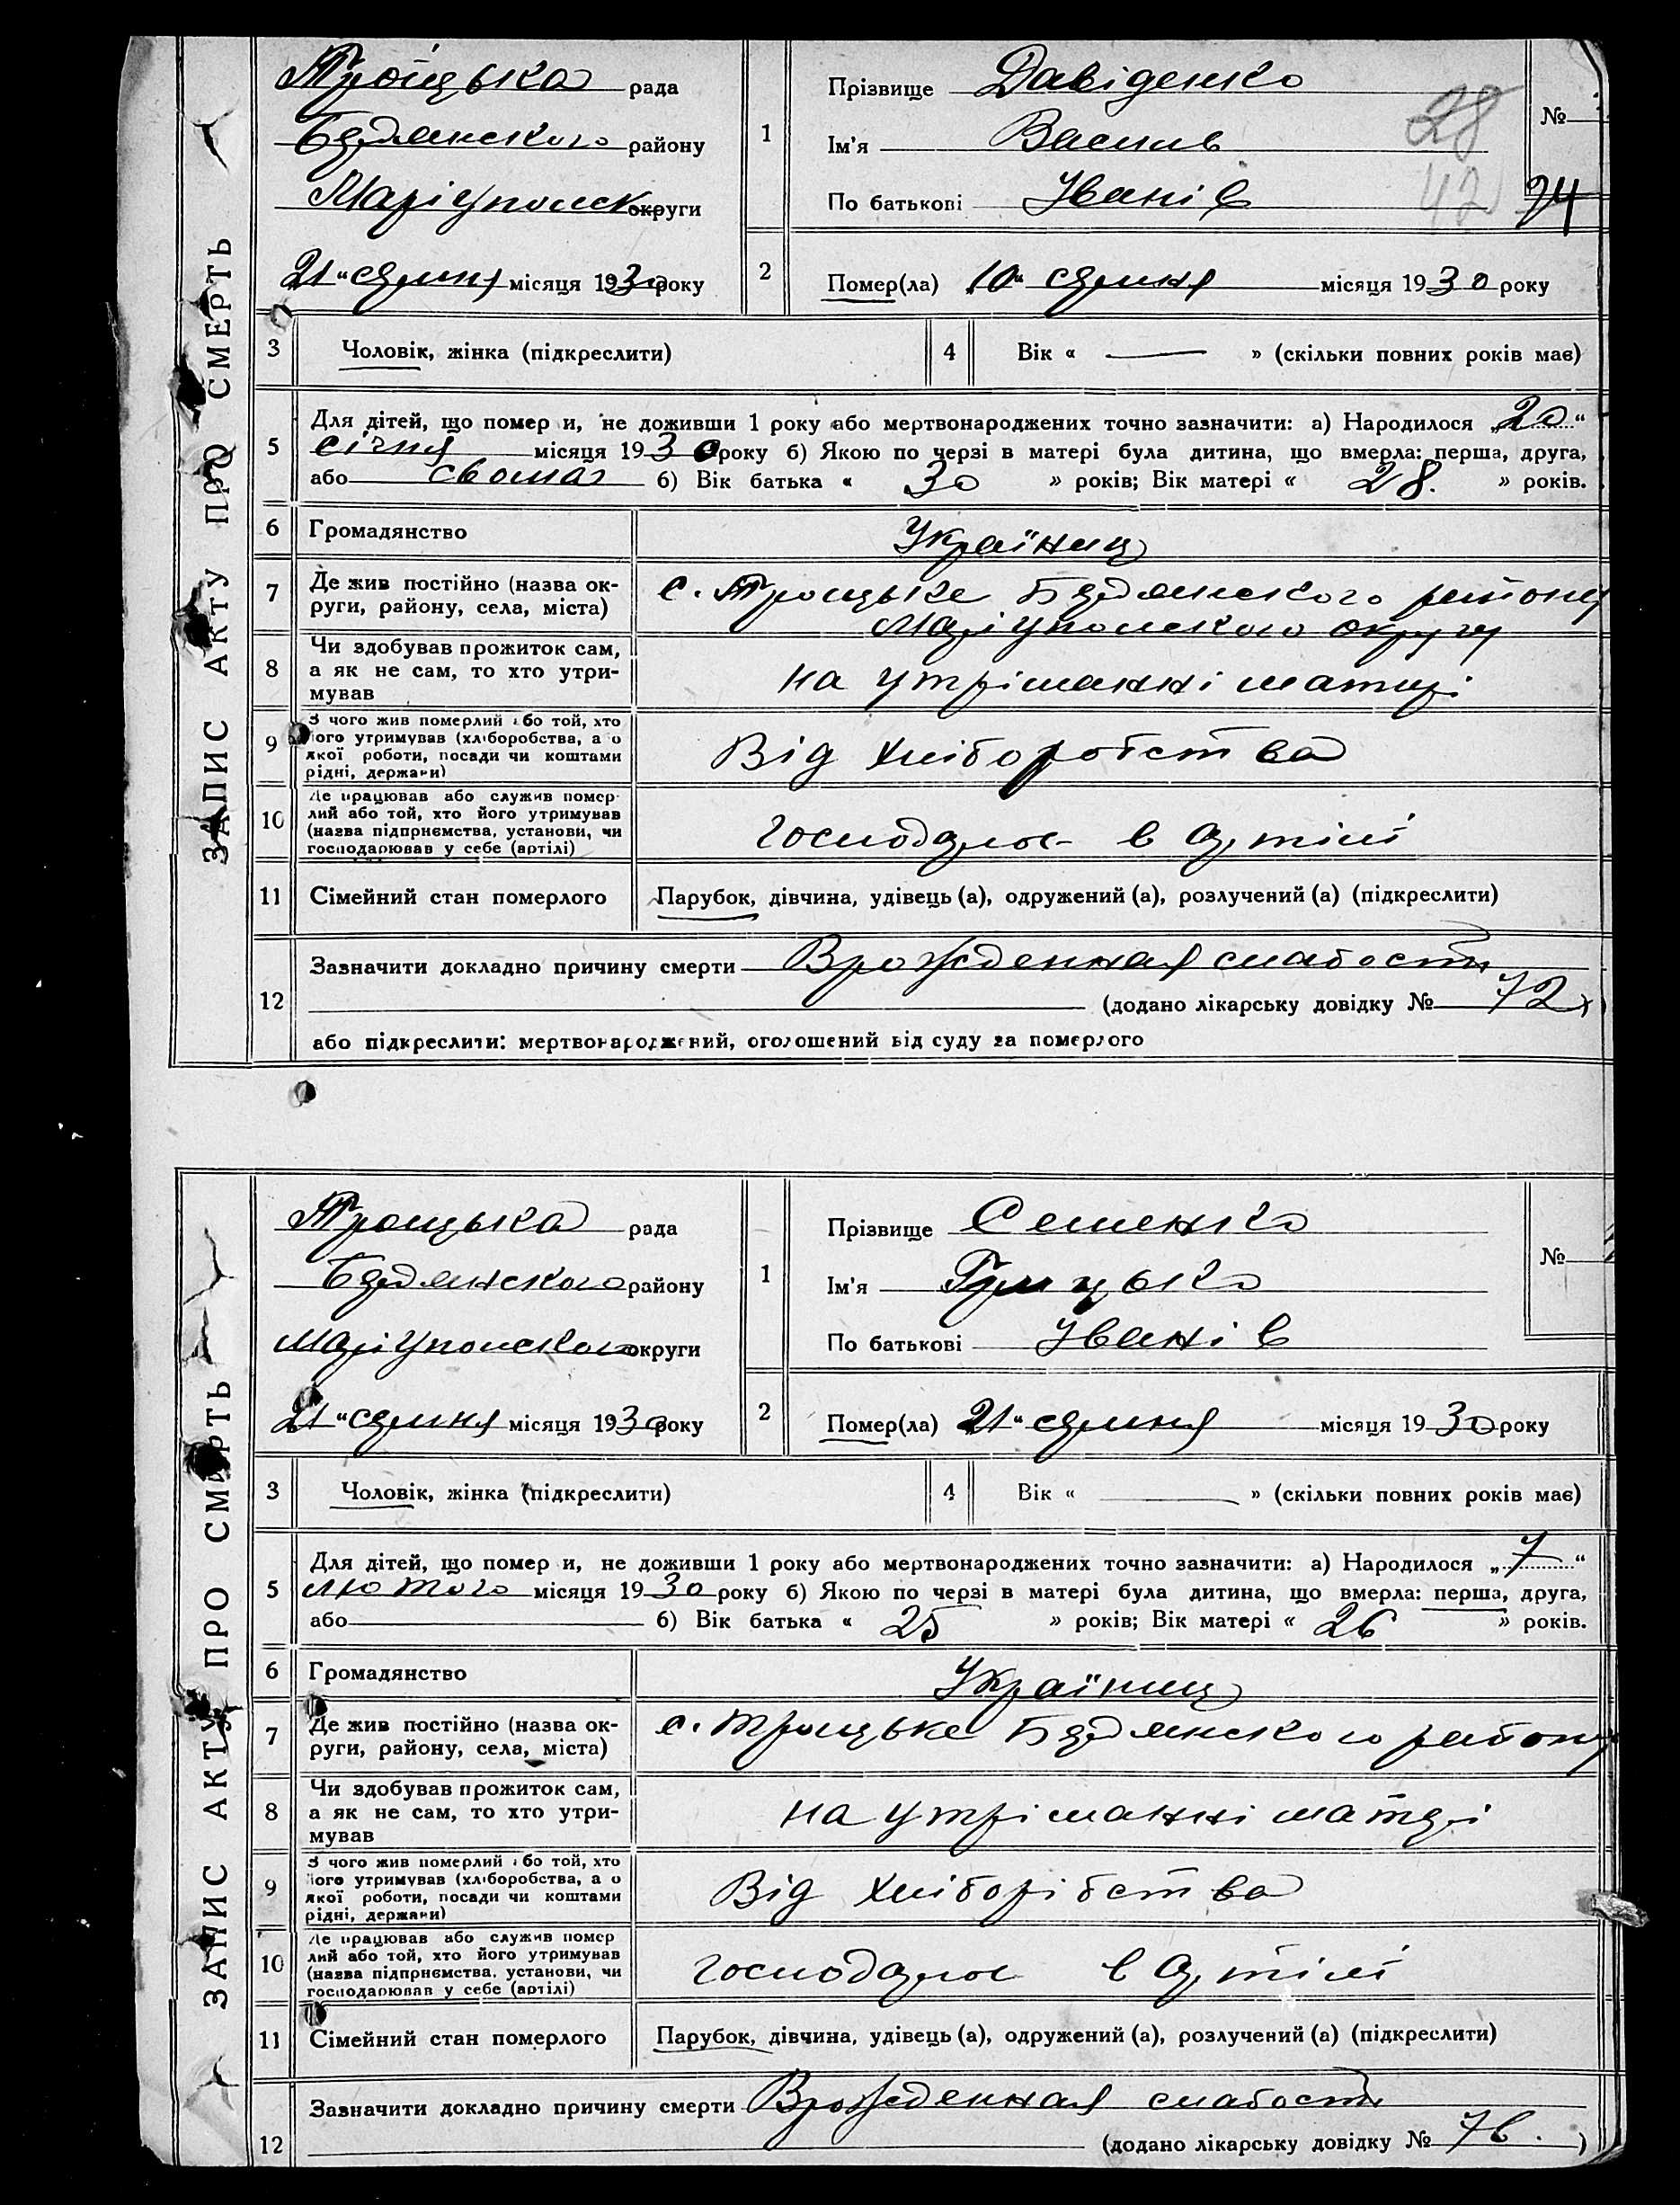 ЗАПИС АКТУ ПРО СМЕРТЬ
Троїцька рада
Будянского району
Маріуполск округи
21 "серпня місяця 1930 року
1
Прізвище Давіденко
Ім'я Василь
По батькові Іванів
28
42
№
24
2
Помер(ла) 10" серпня місяця 1930 року
3 Чоловік, жінка (підкреслити)
4 Вік « — » (скільки повних років має)
5 Для дітей, що помер и, не доживши 1 року або мертвонароджених точно зазначити: а) Народилося „20“
січня місяця 1930 року б) Якою по черзі в матері була дитина, що вмерла: перша, друга,
або сьома б) Вік батька « 30 » років; Вік матері « 28. » років.
6 Громадянство Україниц
7 Де жив постійно (назва ок-
руги, району, села, міста)
с. Троцьке Будянского району
Маріуполского округу
8 Чи здобував прожиток сам,
а як не сам, то хто утри-
мував
на утріманні матері
9 З чого жив померлий або той, хто
його утримував (хліборобства, а о
якої роботи, посади чи коштами
рідні, держави)
Від хліборобства
10 Де працював або служив помер-
лий або той, хто його утримував
(назва підприємства, установи, чи
господарював у себе (артілі)
господарює в артілі
11 Сімейний стан померлого Парубок, дівчина, удівець (а), одружений (а), розлучений (а) (підкреслити)
12 Зазначити докладно причину смерти Врожденная слабость
(додано лікарську довідку № 72)
або підкреслити: мертвонароджений, оголошений від суду за померлого
ЗАПИС АКТУ ПРО СМЕРТЬ
Троцька рада
Будянского району
Маріуполского округи
21 "серпня місяця 1930 року
1
Прізвище Семенко
Ім'я Грицько
По батькові Іванів
№
2
Помер(ла) 21" серпня місяця 1930 року
3 Чоловік, жінка (підкреслити)
4 Вік « — » (скільки повних років має)
5 Для дітей, що помер и, не доживши 1 року або мертвонароджених точно зазначити: а) Народилося „7“
лютого місяця 1930 року б) Якою по черзі в матері була дитина, що вмерла: перша, друга,
або б) Вік батька « 25 » років; Вік матері « 26 » років.
6 Громадянство Україниц
7 Де жив постійно (назва ок-
руги, району, села, міста)
с. Троцьке Будянского району
8 Чи здобував прожиток сам,
а як не сам, то хто утри-
мував
на утріманні матері
9 З чого жив померлий або той, хто
його утримував (хліборобства, а о
якої роботи, посади чи коштами
рідні, держави)
Від хліборібства
10 Де працював або служив помер
лий або той, хто його утримував
(назва підприємства, установи, чи
господарював у себе (артілі)
господарює в артілі
11 Сімейний стан померлого Парубок, дівчина, удівець (а), одружений (а), розлучений (а) (підкреслити)
12 Зазначити докладно причину смерти Врожденная слабость
(додано лікарську довідку № 76. )